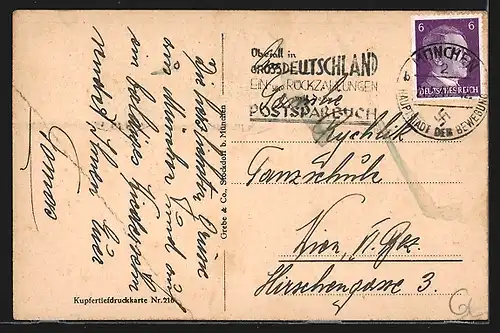 Überall in
GROSSDEUTSCHLAND
EIN- und RÜCKZAHLUNGEN
POSTSPARBUCH
6 6
DEUTSCHES REICH
MÜNCHEN
b
HAUPTSTADT DER BEWEGUNG
Familie
Rychlik
Tanzschule
Wien, VI. Bez.
Hirschengasse 3.
Die herzlichsten Grüsse
aus München und auf
ein baldiges
sendet Ihnen
Grebe & Co., Stockdorf b. München
Kupfertiefdruckkarte Nr. 216